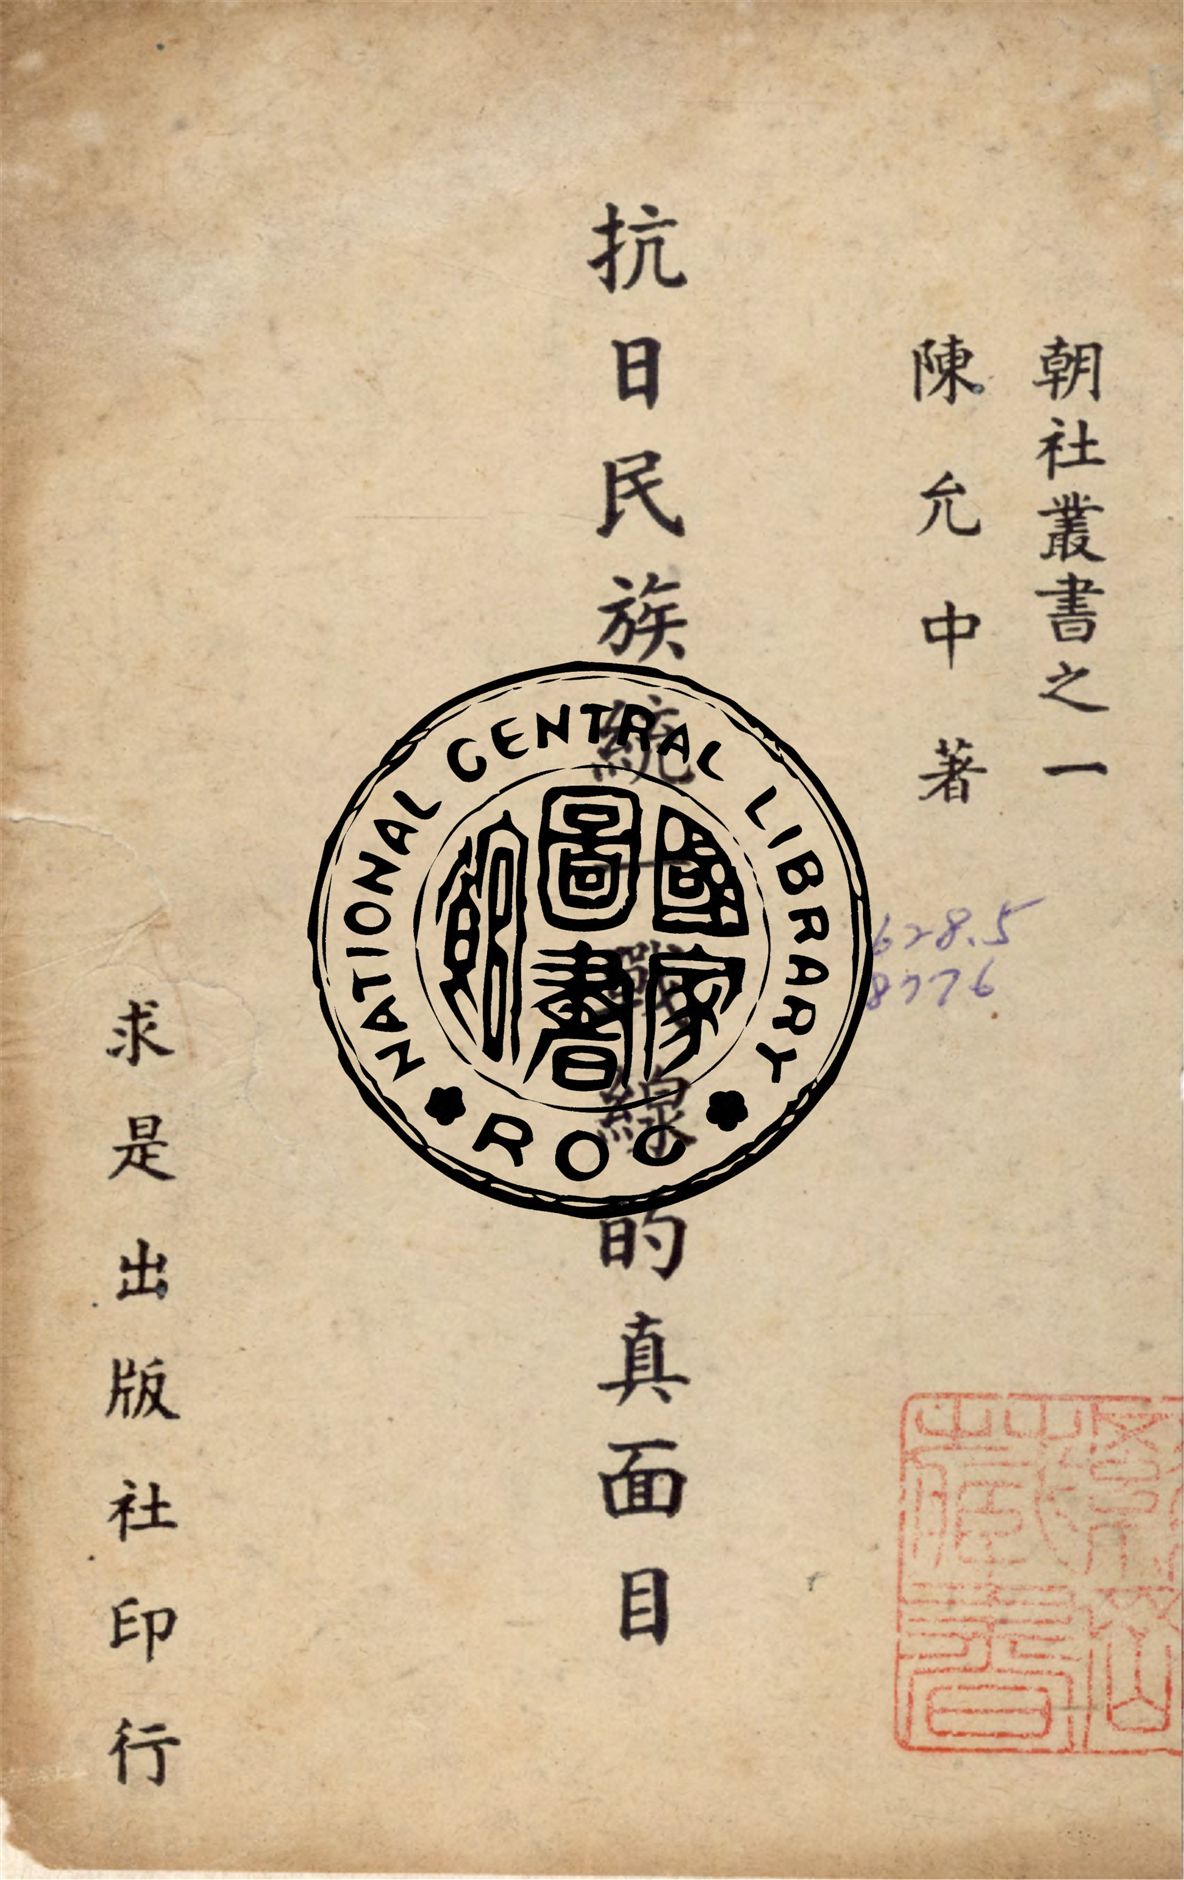 朝社叢書之一
陳允中著
抗日民族統一戰線的真面目
求是出版社印行
628.5
8776
NATIONAL CENTRAL LIBRARY
ROC
國家圖書館